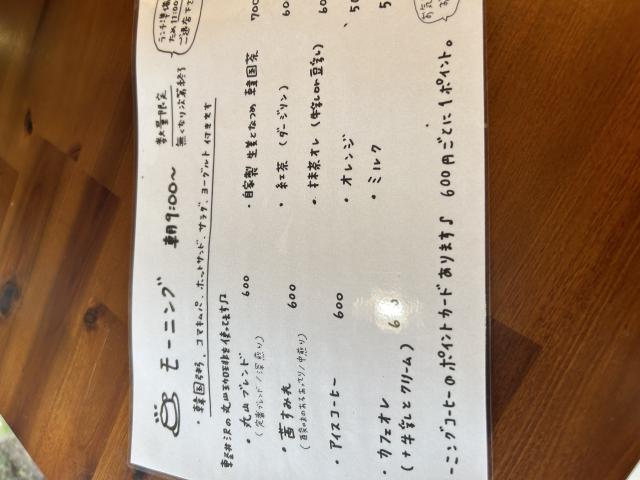 モーニング 朝9:00〜
数量限定
無くなり次第終了
ランチ準備の
ため11:00
ご退店下さ
・韓国粥、コマキムパ、ホットサンド、サラダ、ヨーグルト 付きます
軽井沢の丸山珈琲を使ってます♫
・丸山ブレンド 600
(定番ブレンド/深煎り)
・茜すみれ 600
(酸味のあるあっさり/中煎り)
・アイスコーヒー 600
・カフェオレ
(+牛乳とクリーム)
・自家製 生姜となつめ 韓国茶 700
・紅茶 (ダージリン)
・抹茶オレ (牛乳or豆乳)
・オレンジ
・ミルク
ーニングコーヒーのポイントカードあります♪ 600円ごとに1ポイント。